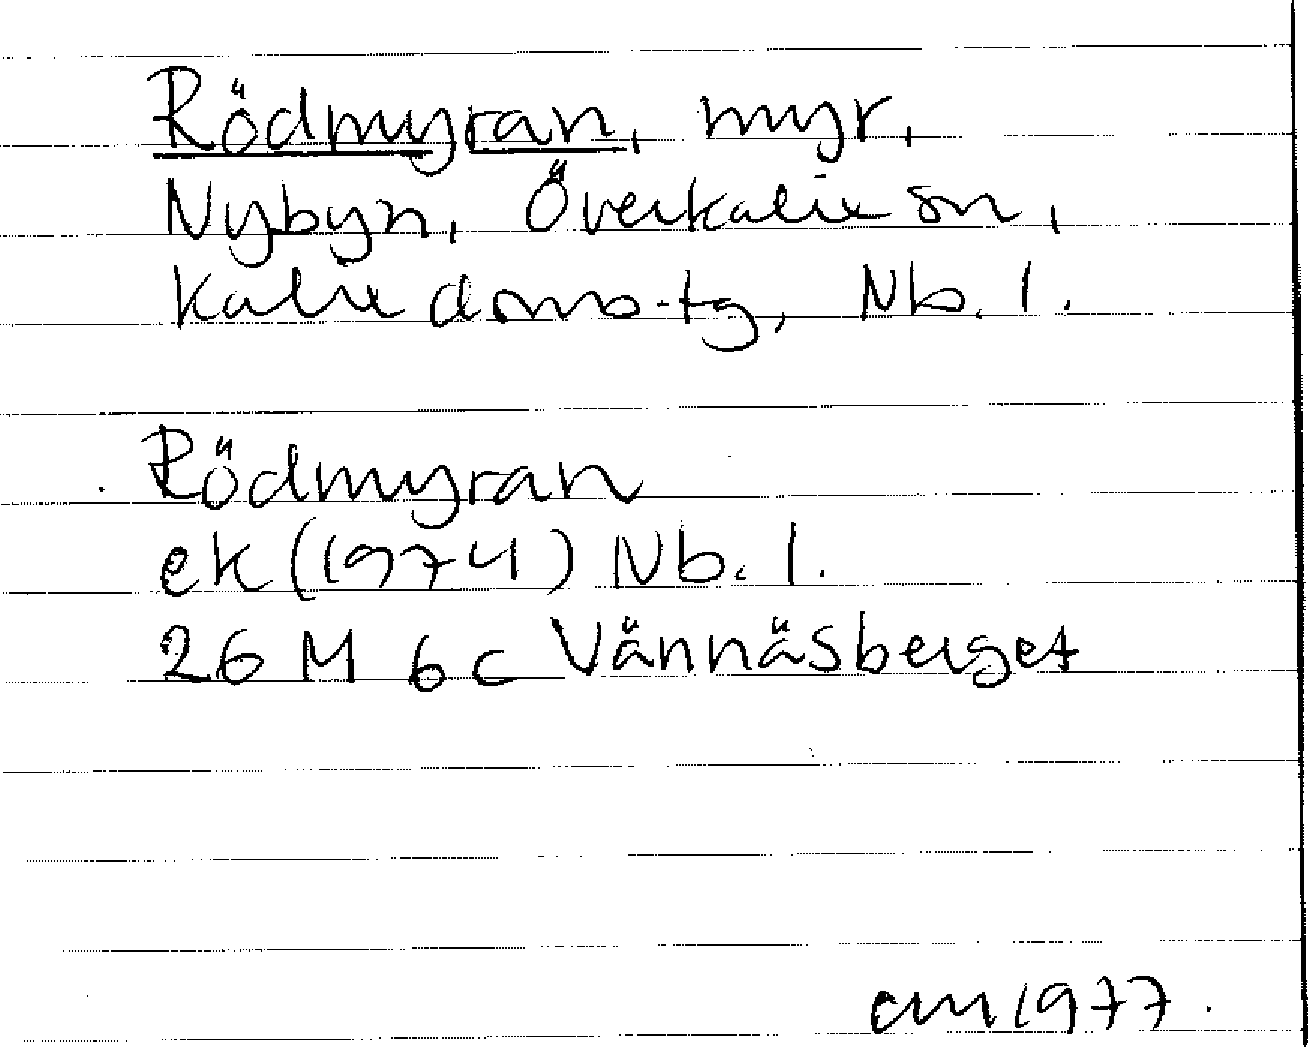 Rödmyran, myr,
Nybyn, Överkalix sn,
Kalix doms-tg, Nb. l.
Rödmyran
ek (1974) Nb. l.
26 M 6c Vännäsberget
1977.